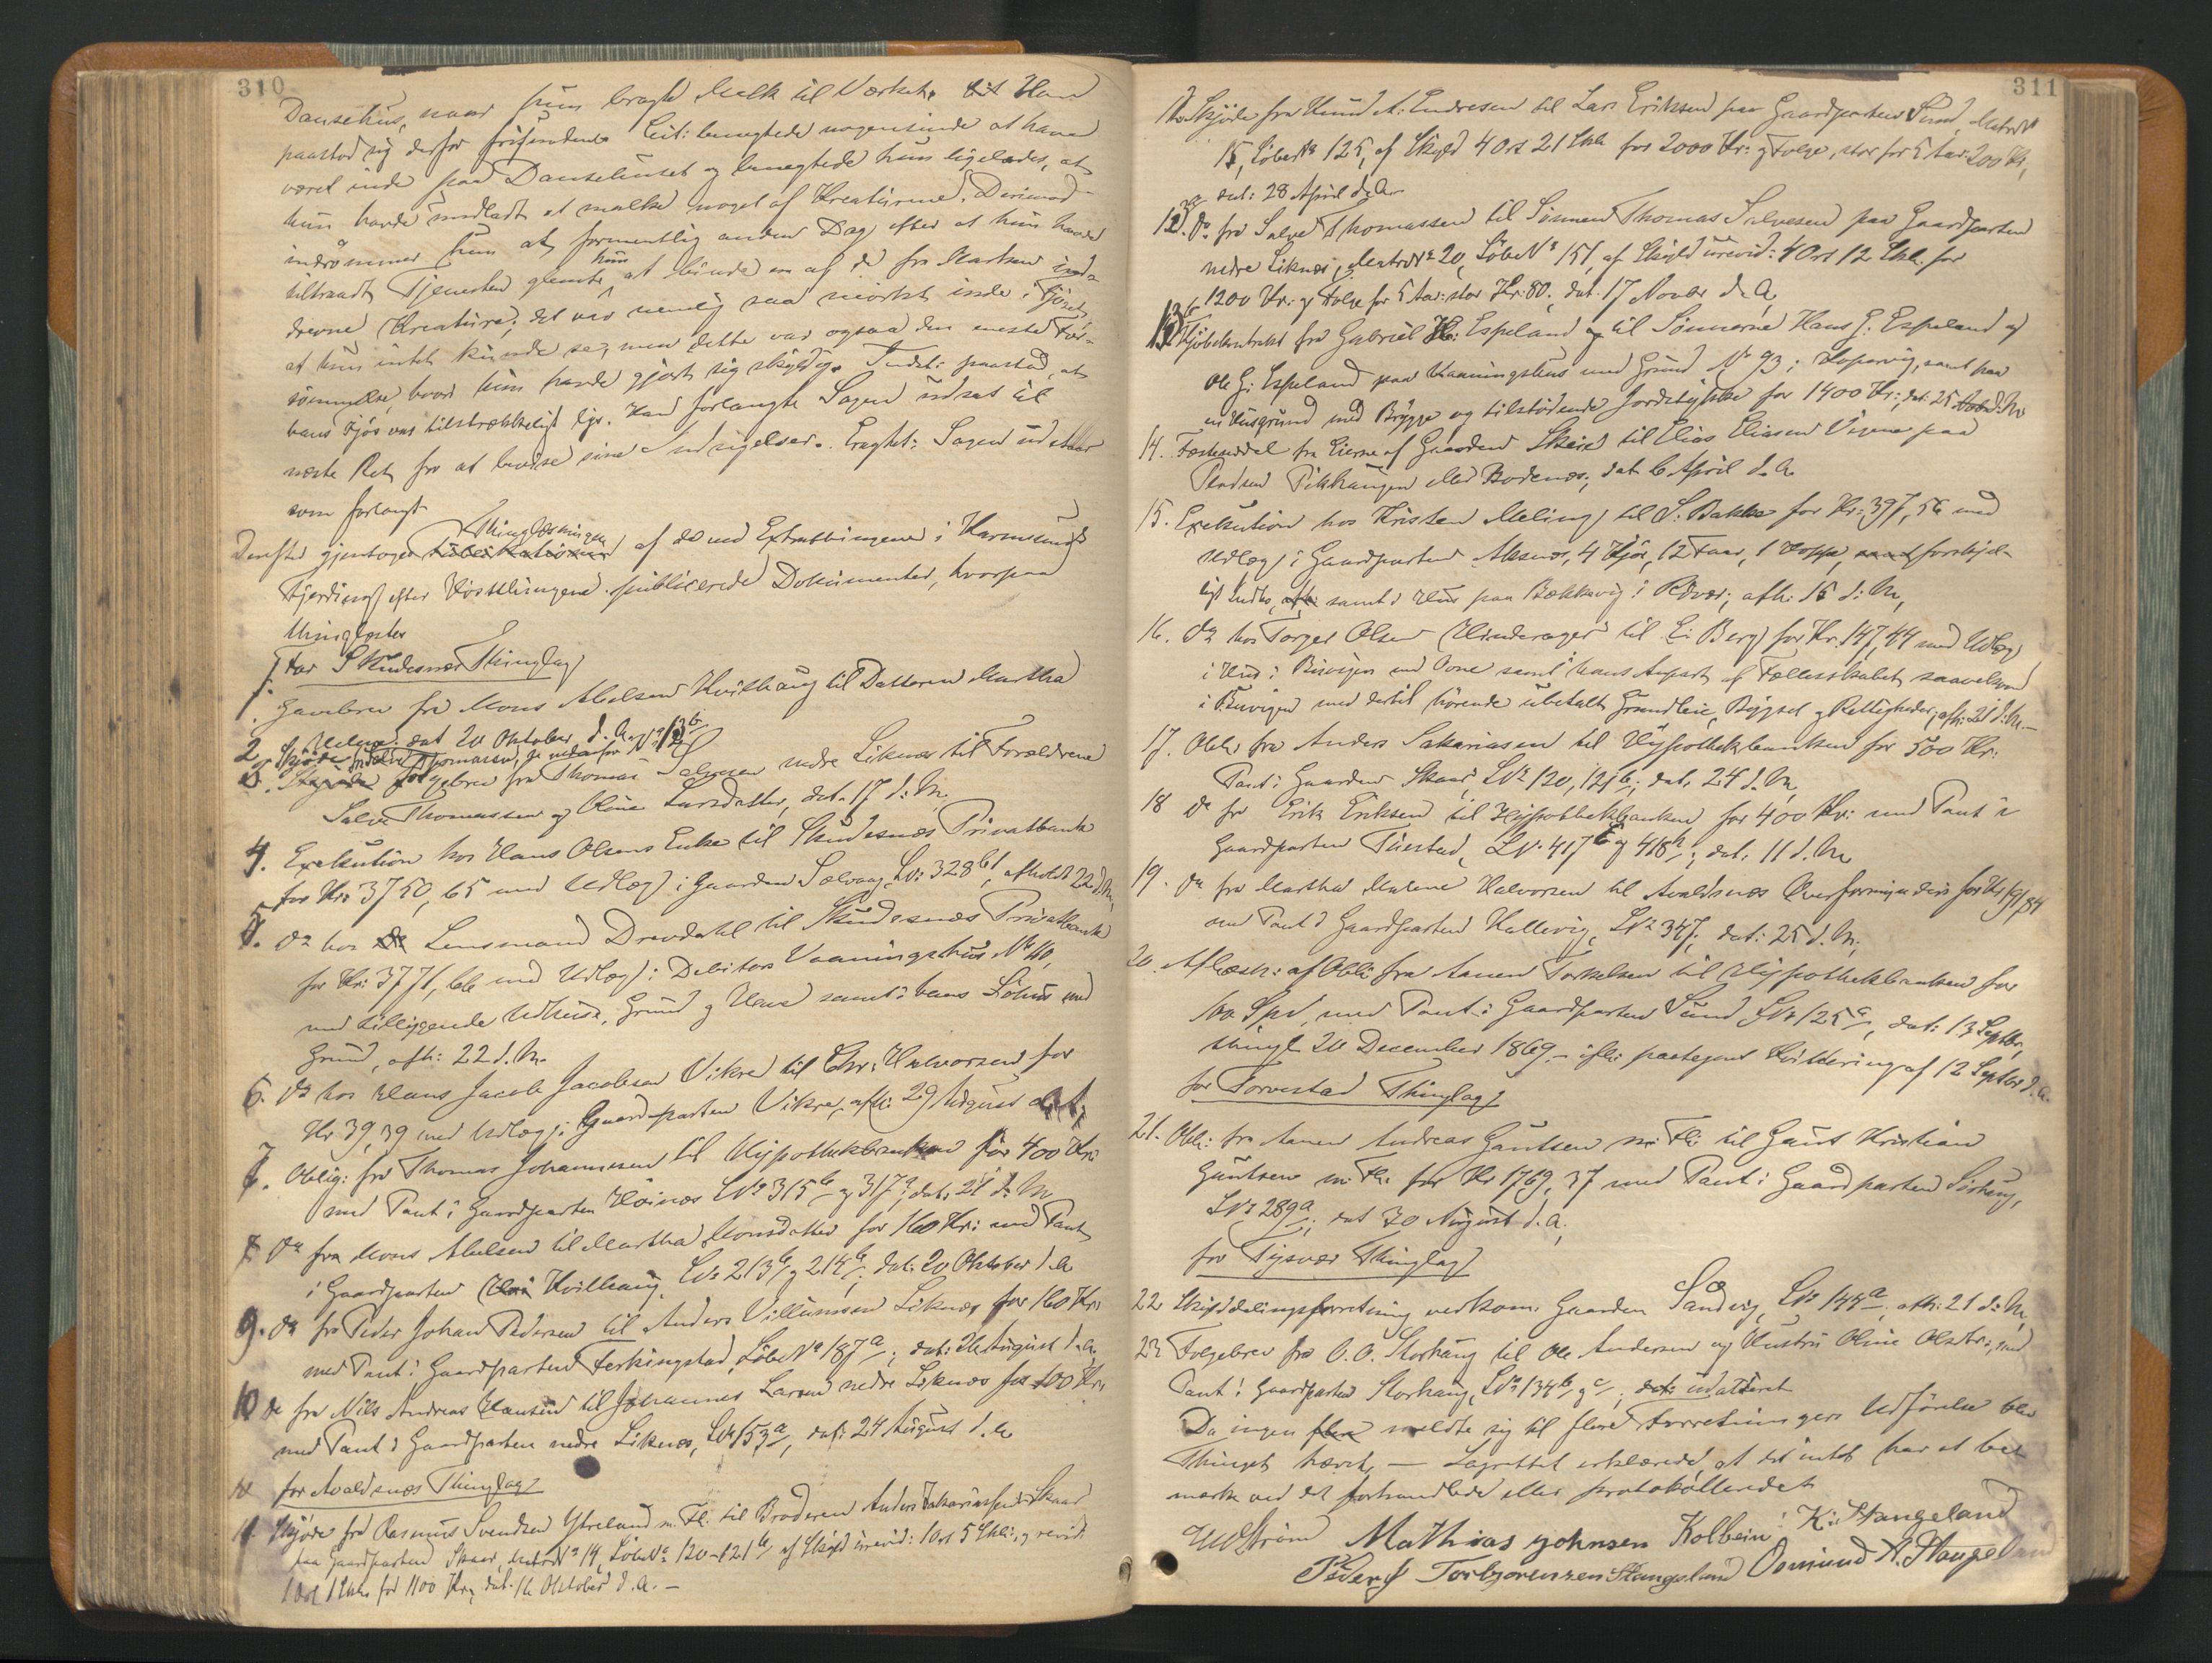 310
Dansehus, naar hun bragte Melk til Værket. Hun
paastod sig derfor frifunden. Cit: benegtede nogensinde at have
været inde paa Dansehuset og benegtede hun ligeledes, at
hun havde undladt at malke noget af Kreaturene. Derimod
indrømmer hun at formentlig anden Dag efter at hun havde
tiltraadt Tjenesten glemte hun at binde en af de fra Marken ind-
drevne Kreature; det var nemlig saa mørkt inde i Fjøset
at hun intet kunde se, men dette var ogsaa den eneste For-
sømmelse, hvori hun havde gjort sig skyldig. Indst: paastod, at
hans Fjøs var tilstrækkeligt lyst. Han forlangte Sagen udsat til
næste Ret for at bevise sine Indsigelser. Eragtet: Sagen udsættes
som forlangt.
Derefter gjentoges Thinglæsningen af de ved Extrathingene i Karmsunds
Fjerding efter Høstthingene publicerede Dokumenter, hvorpaa
thinglæstes
for Skudesnæs Thinglag
1. Gavebrev fra Mons Abelsen Hvilhaug til Datteren Martha
dat 20 Oktober d. A.
2. Skjøde fra Salve Thomassen, se nedenfor No 13b
3. Folgebrev fra Thomas Salvesen nedre Liknæs til Forældrene
Salve Thomassen og Oline Larsdatter, dat. 17 d: M.
4. Exekution hos Hans Olsens Enke til Skudesnæs Privatbank
for Kr: 3750,65 med Udlæg i Gaarden Sælvaag, LNo 328b1, afholdt 22 d: M.
5. Do hos Lensmand Drevdahl til Skudesnæs Privatbank
for Kr: 3771, med Udlæg i Debitors Vaaningshus No 40,
med tilliggende Udhuse, Grund og Have samt i hans Søhus med
Grund, afh: 22 d. M.
6. Do hos Hans Jacob Jacobsen Vikre til Chr: Halvorsen for
Kr 39,39 med Udlæg i Gaardparten Vikre, afh: 29 August d. A.
7. Oblig: fra Thomas Johannesen til Hypothekbanken for 400 Kr:
med Pant i Gaardparten Høinæs LNo 315b og 317a; dat. 21 d: M.
8 Do fra Mons Abelsen til Martha Monsdatter for 160 Kr: med Pant
i Gaardparten Hvilhaug, LNo 213b og 214b; dat. 20 Oktober d. A.
9. Do fra Peder Johan Pedersen til Anders Villumsen Liknæs for 160 Kr:
med Pant i Gaardparten Ferkingstad, LøbeNo 187a; dat: 26 August d. A.
10 Do fra Nils Andreas Hansen til Johannes Larsen nedre Liknæs for 100 Kr:
med Pant i Gaardparten nedre Liknæs, LNo 153a, dat: 24 August d. A.
for Avaldsnæs Thinglag
11. Skjøde fra Rasmus Svendsen Ytreland m. Fl. til Broderen Anders Sakariassen Skaar
paa Gaardparten Skaar, MatrNo 14, LøbeNo 120-121b af Skyld urevid: 1 Ort 5 Skil: og revid:
1 Ort 1 Skil. for 1100 Kr; dat. 16 Oktober d. A. —
311
12. Skjøde fra Knud A. Endresen til Lars Eriksen paa Gaardparten Sund, MatrNo
15, LøbeNo 125, af Skyld 4 Ort 21 Skil. for 2000 Kr: og Folge, stor for 5 Aar: 200 Kr,
dat: 28 April d. A.
13a. Do fra Salve Thomassen til Sønnen Thomas Salvesen paa Gaardparten
nedre Liknæs, MatrNo 20, LøbeNo 151, af Skyld urevid: 4 Ort 12 Skil. for
1200 Kr. og Folge for 5 Aar: stor Kr: 80; dat: 17 Novbr d. A.
13b Kjøbekontrakt fra Gabriel H: Espeland til Sønnerne Hans G: Espeland og
Ole G: Espeland paa Vaaningshus med Grund No 93 i Kopervig, samt paa
en Husgrund med Brygge og tilstødende Jordstykke for 1400 Kr:; dat. 25 d: M.
14. Fæsteseddel fra Eierne af Gaarden Skeie til Elias Eliasen Vigene paa
Pladsen Pikhaugen eller Bodenæs; dat. 6 April d. A.
15. Exekution hos Kristen Meling til S. Bakke for Kr: 397,56 med
Udlæg i Gaardparten Mesnæs, 4 Kjør, 12 Faar, 1 Hoppe, forskjel-
ligt Indbo, samt i Hus paa Bækkevig i Røvær; afh. 15 d: M,
16. Do hos Torger Olsen Hinderager til E: Berg for Kr. 147,44 med Udlæg
i Hus i Buvigen med Ovne samt hans Anpart af Fællesskabet saavelsom
i Buvigen med dertil hørende ubetalt Grundleie, Bygsel og Rettigheder; afh: 21 d: M.—
17. Obl: fra Anders Sakariasen til Hypothekbanken for 500 Kr:
Pant i Gaarden Skaar, LNo 120, 121b; dat. 24 d. M,
18 Do fra Erik Eriksen til Hypothekbanken for 400 Kr: med Pant i
Gaardparten Tuestad, LNo 417 og 418; dat: 11 d. M.
19. Do fra Martha Malene Halvorsen til Avaldsnæs Overformynderi for Kr
med Pant i Gaardparten Hallevig, LNo 347; dat: 25 d. M;
20. Aflæsn: af Obl: fra Aanen Torkelsen til Hypothekbanken for
100 Spd, med Pant i Gaardparten Sund LNo 125a, dat: 13 Septbr,
thingl. 20 December 1869 — ifl: paategnet Kvittering af 12 Septbr d. A.
for Torvestad Thinglag
21. Obl: fra Aanen Andreas Gautsen m: Fl: til Gaut Kristian
Gautsen m. Fl. for Kr 1769,37 med Pant i Gaardparten
LNo 289a; dat 30 August d. A.
for Tysvær Thinglag
22 Skylddelingsforretning vedkom. Gaarden Sandvig, LNo 144a; afh: 21 d: M,
23 Folgebrev fra O. O. Storhaug til Ole Andersen og Hustru Oline Olsdtr:, med
Pant i Gaardparten Storhaug, LNo 134b og c; udateret
Da ingen meldte sig til flere Forretningers Udførelse blev
Thinget hævet, — Lagrettet erklærede, at det intet har at be-
mærke ved det forhandlede eller protokollerede.
Mathias Johnsen Kolbein K: Stangeland
Peder Torbjørensen Stangeland Osmund A. Stangeland